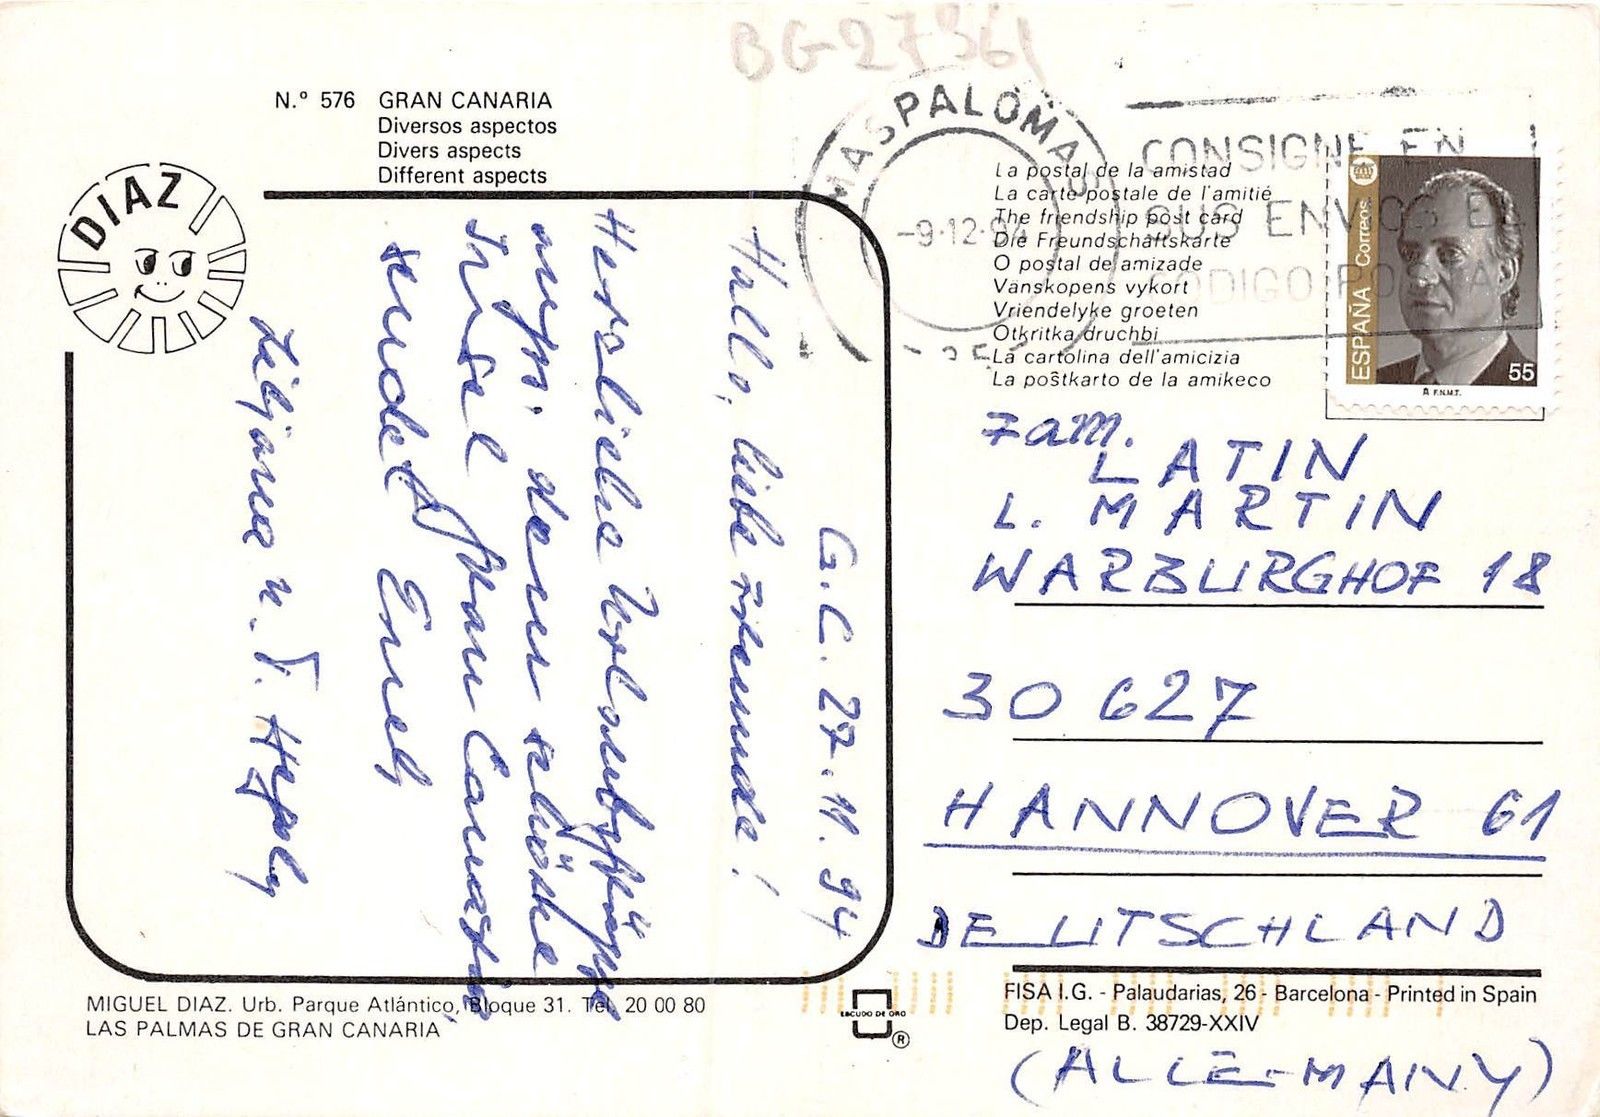 BG-27361
N.º 576 GRAN CANARIA
Diversos aspectos
Divers aspects
Different aspects
DIAZ
MASPALOMAS
-9-12-94
CONSIGNE EN
SUS ENVIOS EL
CODIGO POSTAL
La postal de la amistad
La carte postale de l'amitié
The friendship post card
Die Freundschaftskarte
O postal de amizade
Vänskopens vykort
Vriendelyke groeten
Otkritka druchbi
La cartolina dell'amicizia
La poŝtkarto de la amikeco
ESPAÑA Correos
55
F.N.M.T.
G.C. 27.11.94
Hallo, liebe Freunde!
Herzliche Urlaubsgrüße
von der schöne
Insel Gran Canaria
sendet Euch
Liljana u.
Fam.
LATIN
L. MARTIN
WARBURGHOF 18
30 627
HANNOVER 61
DEUTSCHLAND
(ALLE-MANY)
MIGUEL DIAZ. Urb. Parque Atlántico, Bloque 31. Tel. 20 00 80
LAS PALMAS DE GRAN CANARIA
ESCUDO DE ORO
®
FISA I.G. - Palaudarias, 26 - Barcelona - Printed in Spain
Dep. Legal B. 38729-XXIV